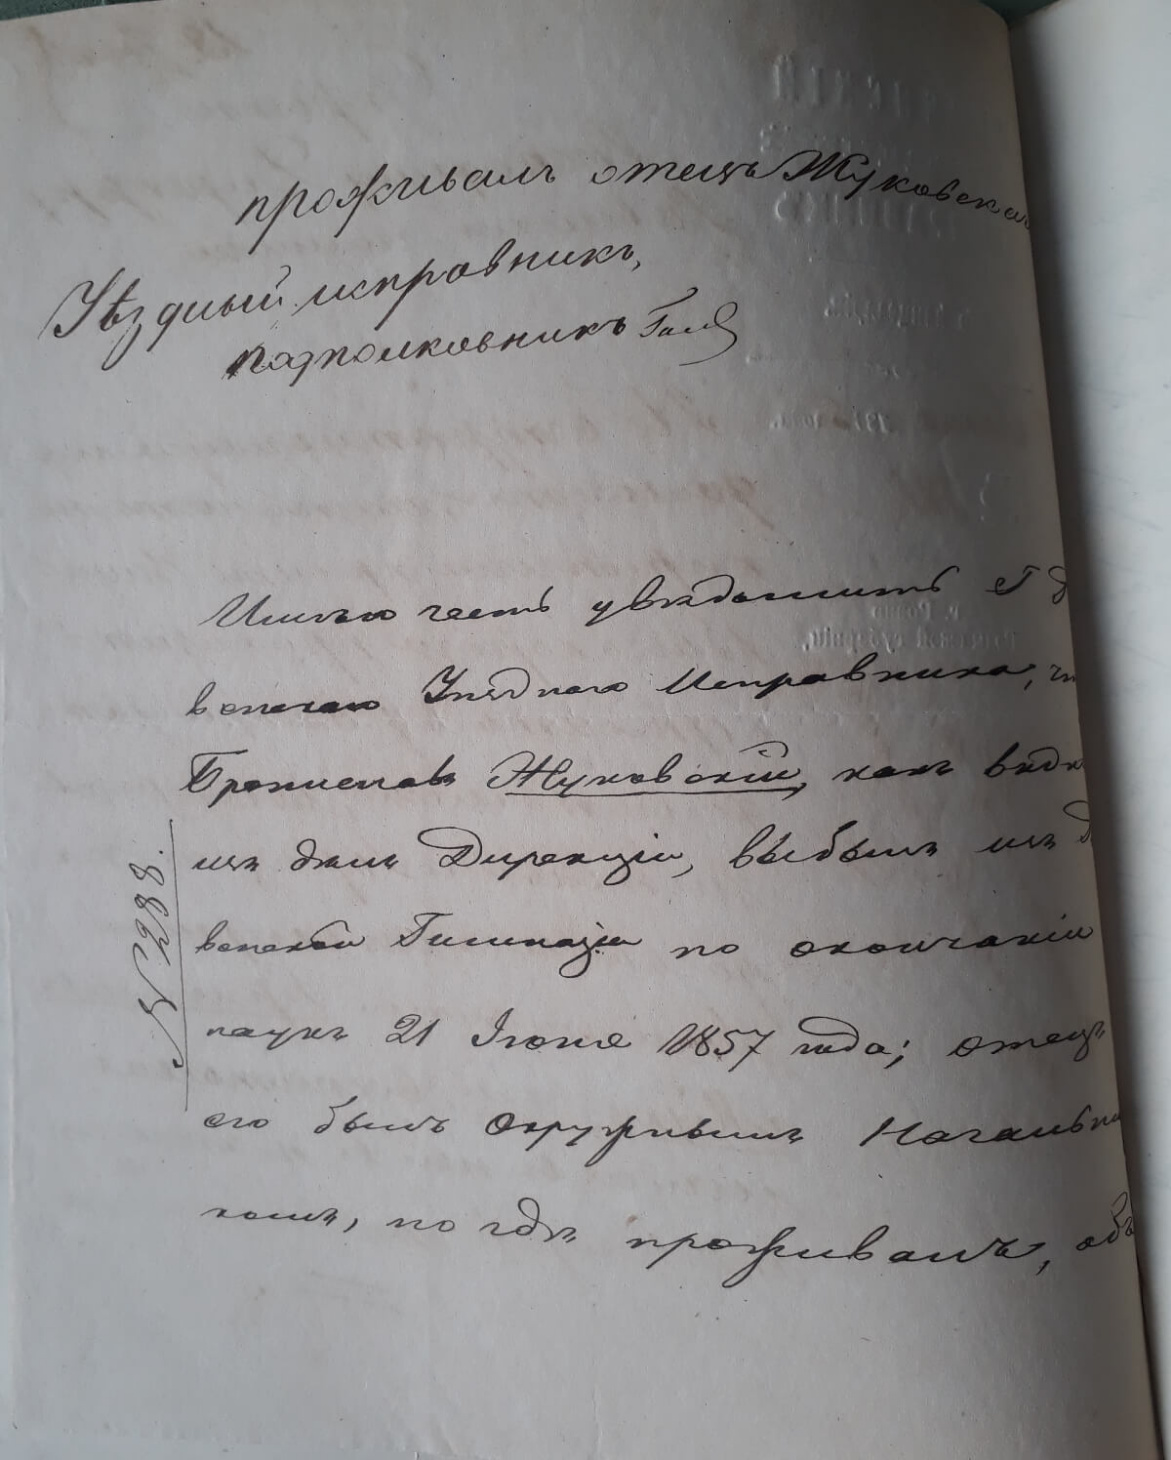 проживалъ отецъ Жуковскаго
Уѣздный исправникъ,
подполковникъ
Имѣю честь увѣдомить Г
венскаго Уѣзднаго Исправника, чт
Брониславъ Жуковскій, какъ видно
изъ дѣлъ Дирекціи, выбылъ изъ
венской Гимназіи по окончаніи
наукъ 21 Іюня 1857 года; отецъ
его былъ Окружнымъ Начальни
комъ, но гдѣ проживалъ, объ
N 288.
г. Ровно
губерніи,